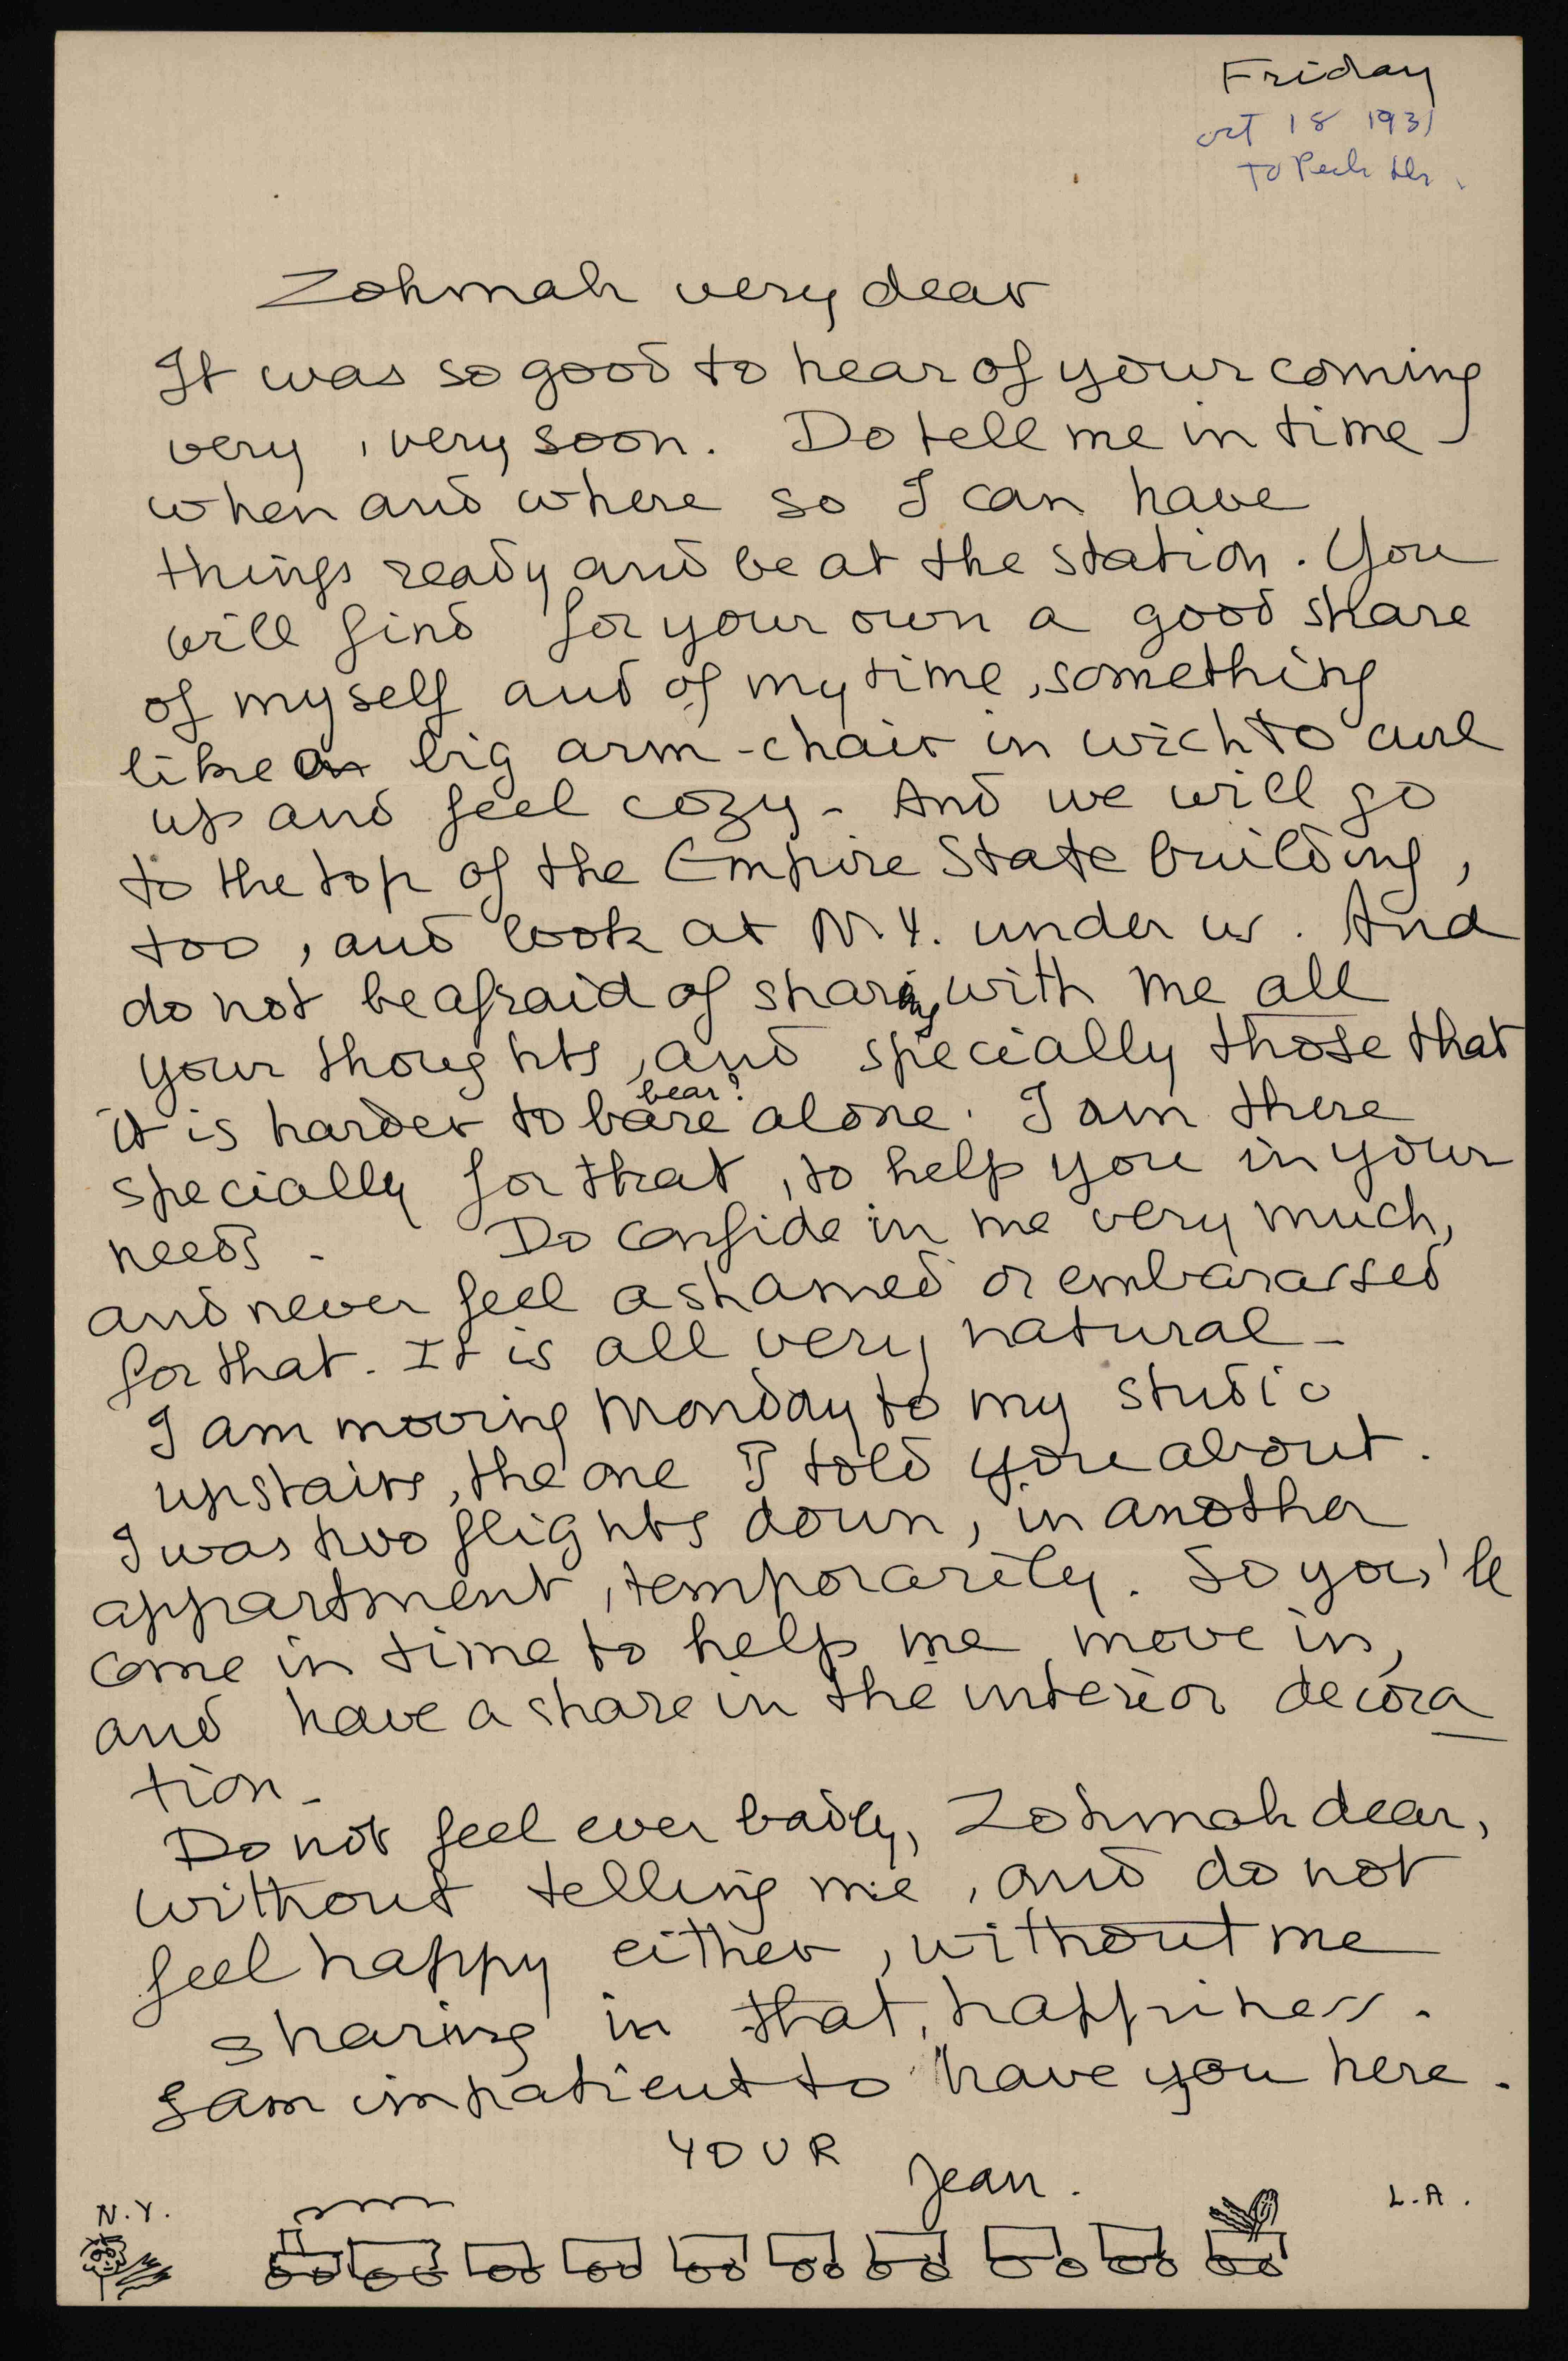 Friday
oct 18 1931
to
Zohmah very dear
It was so good to hear of your coming
very, very soon. Do tell me in time
when and where so I can have
things ready and be at the station. You
will find for your own a good share
of myself and of my time, something
like a big arm-chair in wich to curl
up and feel cozy - And we will go
to the top of the Empire State building,
too, and look at N.Y. under us. And
do not be afraid of sharing with me all
your thoughts, and specially those that
bear?
it is harder to bare alone. I am there
specially for that, to help you in your
needs - Do confide in me very much,
and never feel ashamed or embarassed
for that. It is all very natural -
I am moving Monday to my studio
upstairs, the one I told you about.
I was two flights down, in another
appartment, temporarily. So you'll
come in time to help me move in,
and have a share in the interior decora
tion -
Do not feel ever badly, Zohmah dear,
without telling me, and do not
feel happy either, without me
sharing in that happiness.
I am impatient to have you here.
YOUR
Jean.
N.Y.
L.A.